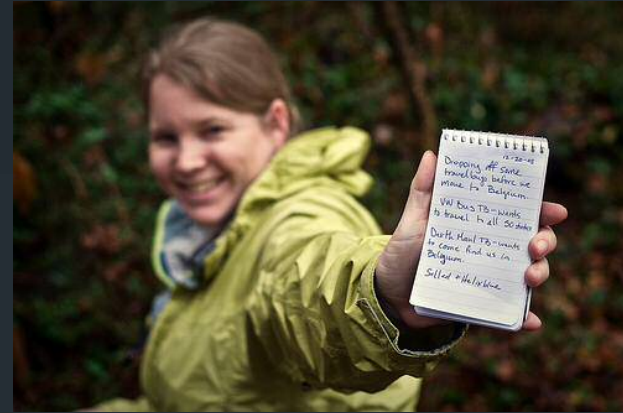 12-20-08
Dropping off some
travelbugs before we
move to Belgium.
VW Bus TB - wants
to travel to all 50 states
Darth Maul TB - wants
to come find us in
Belgium.